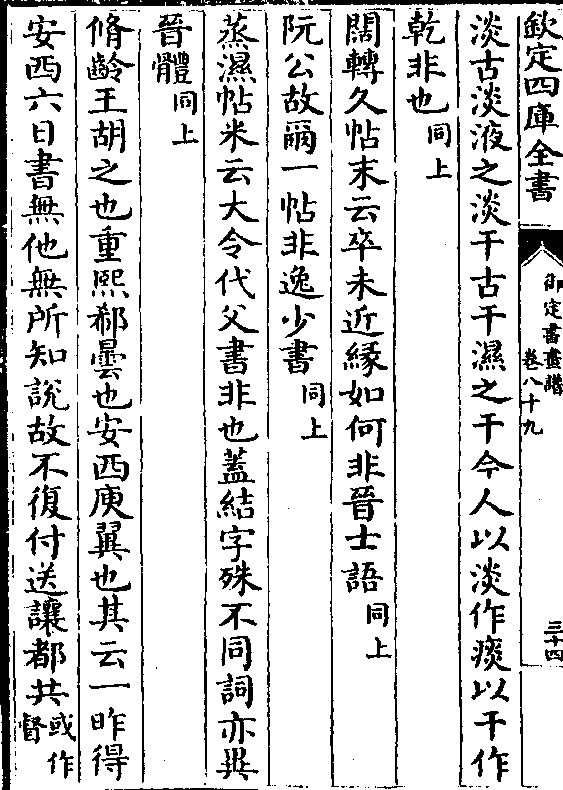 欽定四庫全書
御定書畫譜
卷八十九
三十四
淡古淡液之淡干古干濕之干今人以淡作痰以干作
乾非也同上
闊轉久帖末云卒未近緣如何非晉士語同上
阮公故爾一帖非逸少書同上
蒸濕帖米云大令代父書非也蓋結字殊不同詞亦異
晉體同上
脩齡王胡之也重熙郗曇也安西庾翼也其云一昨得
安西六日書無他無所知說故不復付送讓都共或作督